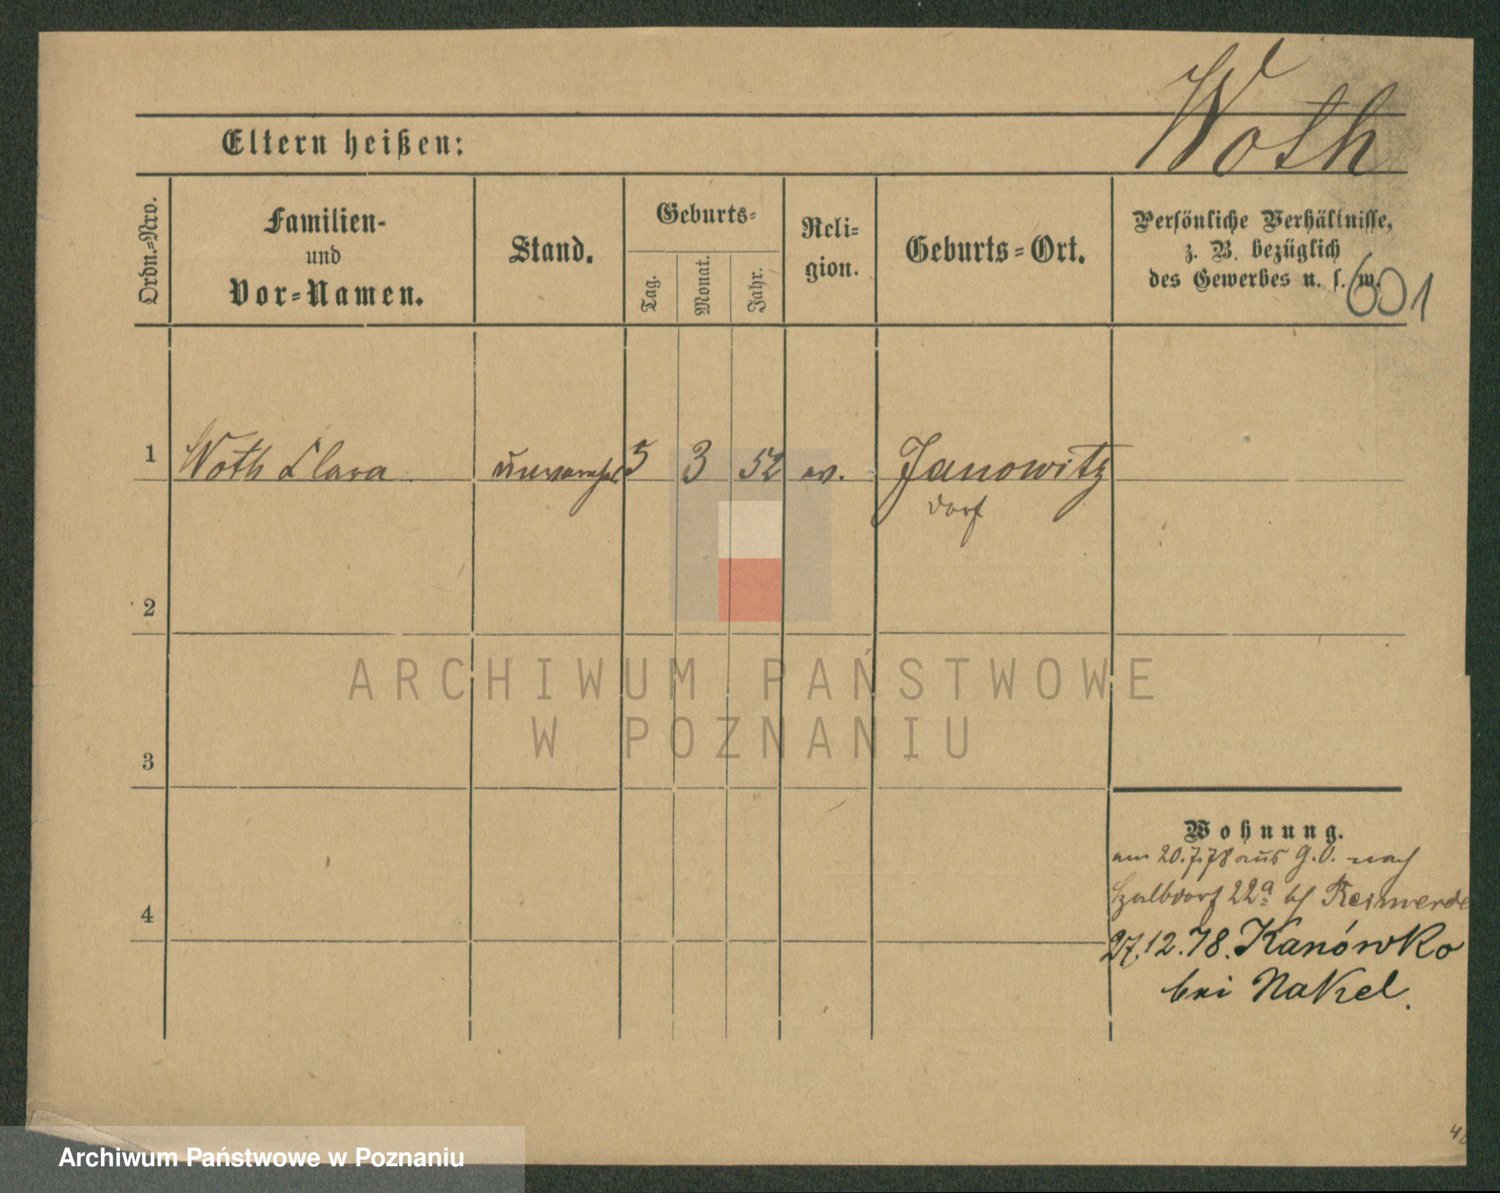 Woth
Eltern heißen:
Ordn.-Nro.
Familien-
und
Vor-Namen.
Stand.
Geburts-
Tag.
Monat.
Jahr.
Reli-
gion.
Geburts-Ort.
Persönliche Verhältnisse,
z. B. bezüglich
des Gewerbes u. s. w.
601
1 Woth Clara 5 3 52 ev. Janowitz
dorf
2
3
4
Wohnung.
am 20.7.78 aus G.O. nach
22a bei Reimerde
27.12.78. Kanówko
bei Nakel.
ARCHIWUM PAŃSTWOWE
W POZNANIU
Archiwum Państwowe w Poznaniu